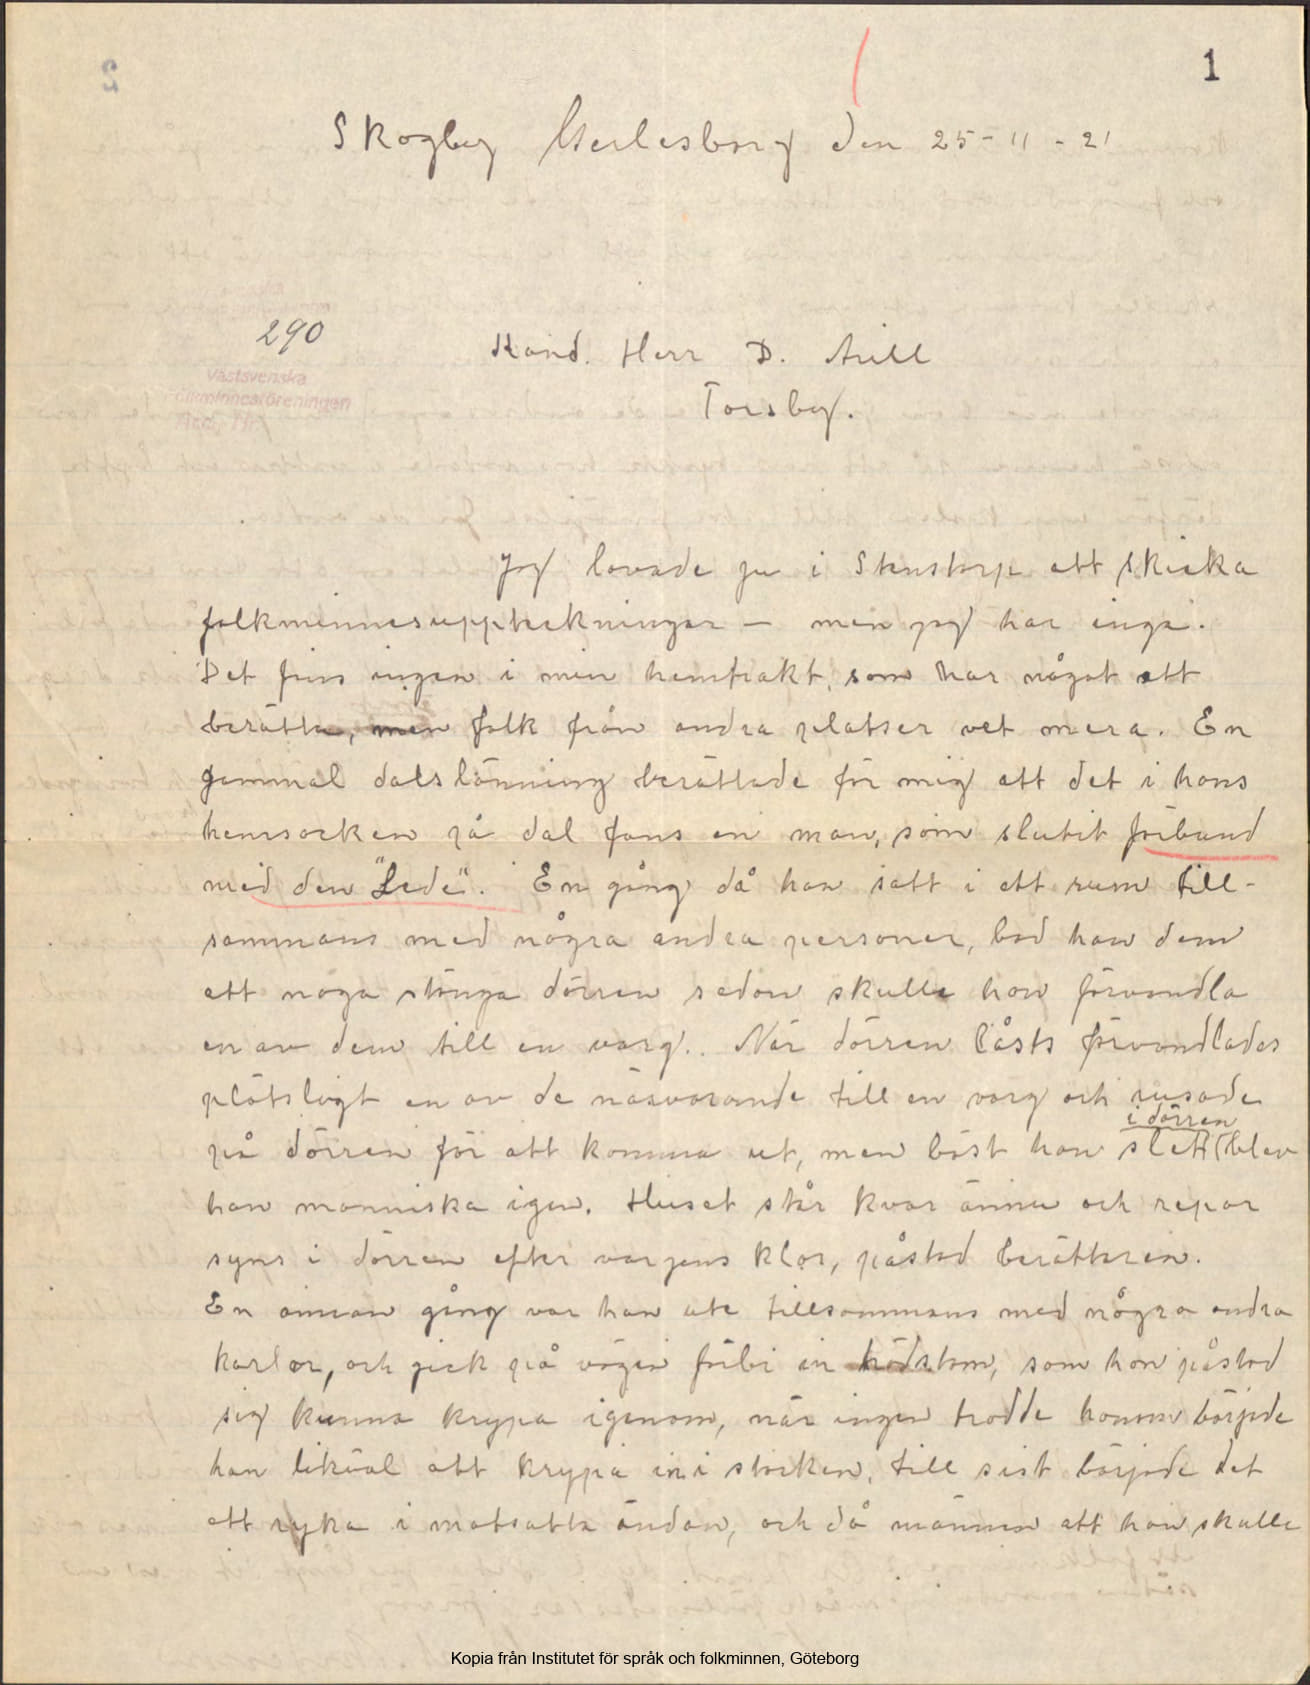 1
Skogby Gerlesborg den 25-11-21
290
Kand. Herr D. Arill
Torsby.
Västsvenska
folkminnesföreningen
Acc. Nr
Jag lovade ju i Stenstorp att skicka
folkminnesuppteckningar — men jag har inga.
Det fins ingen i min hemtrakt, som har något att
berätta, men folk från andra platser vet mera. En
gammal dalslänning berättade för mig att det i hans
hemsocken på dal fans en man, som slutit förbund
med den "Lede". En gång då han satt i ett rum till-
sammans med några andra personer, bad han dem
att noga stänga dörren sedan skulle han förvandla
en av dem till en varg.. När dörren låsts förvandlades
plötsligt en av de närvarande till en varg och rusade
i dörren
på dörren för att komma ut, men bäst han slet (blev
han människa igen. Huset står kvar ännu och repor
syns i dörren efter vargens klor, påstod berättaren.
En annan gång var han ute tillsammans med några andra
karlar, och gick på vägen förbi en stam, som han påstod
sig kunna krypa igenom, när ingen trodde honom började
han likväl att krypa in i stocken, till sist började det
att ryka i motsatta ändan, och då männen att han skulle
Kopia från Institutet för språk och folkminnen, Göteborg